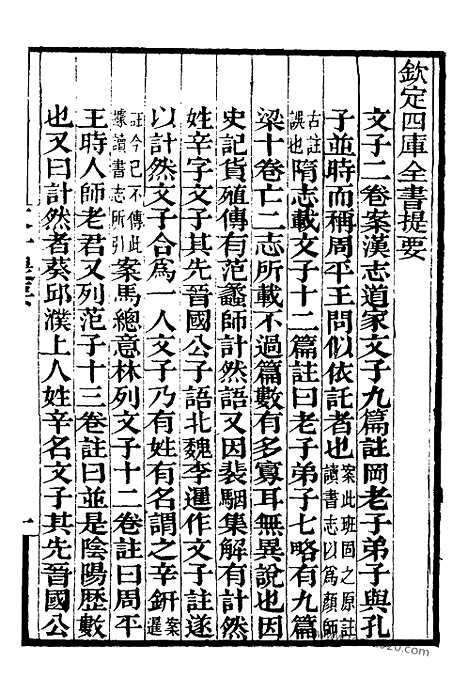 欽定四庫全書提要
文子二卷案漢志道家文子九篇註岡老子弟子與孔
子並時而稱周平王問似依託者也案此班固之原註讀書志以爲顏師
古註誤也隋志載文子十二篇註曰老子弟子七略有九篇
梁十卷亡二志所載不過篇數有多寡耳無異說也因
史記貨殖傳有范蠡師計然語又因裴駰集解有計然
姓辛字文子其先晉國公子語北魏李暹作文子註遂
以計然文子合爲一人文子乃有姓有名謂之辛鈃案暹
註今已不傳此據讀書志所引案馬總意林列文子十二卷註曰周平
王時人師老君又列范子十三卷註曰並是陰陽歷數
也又曰計然者葵邱濮上人姓辛名文子其先晉國公
一